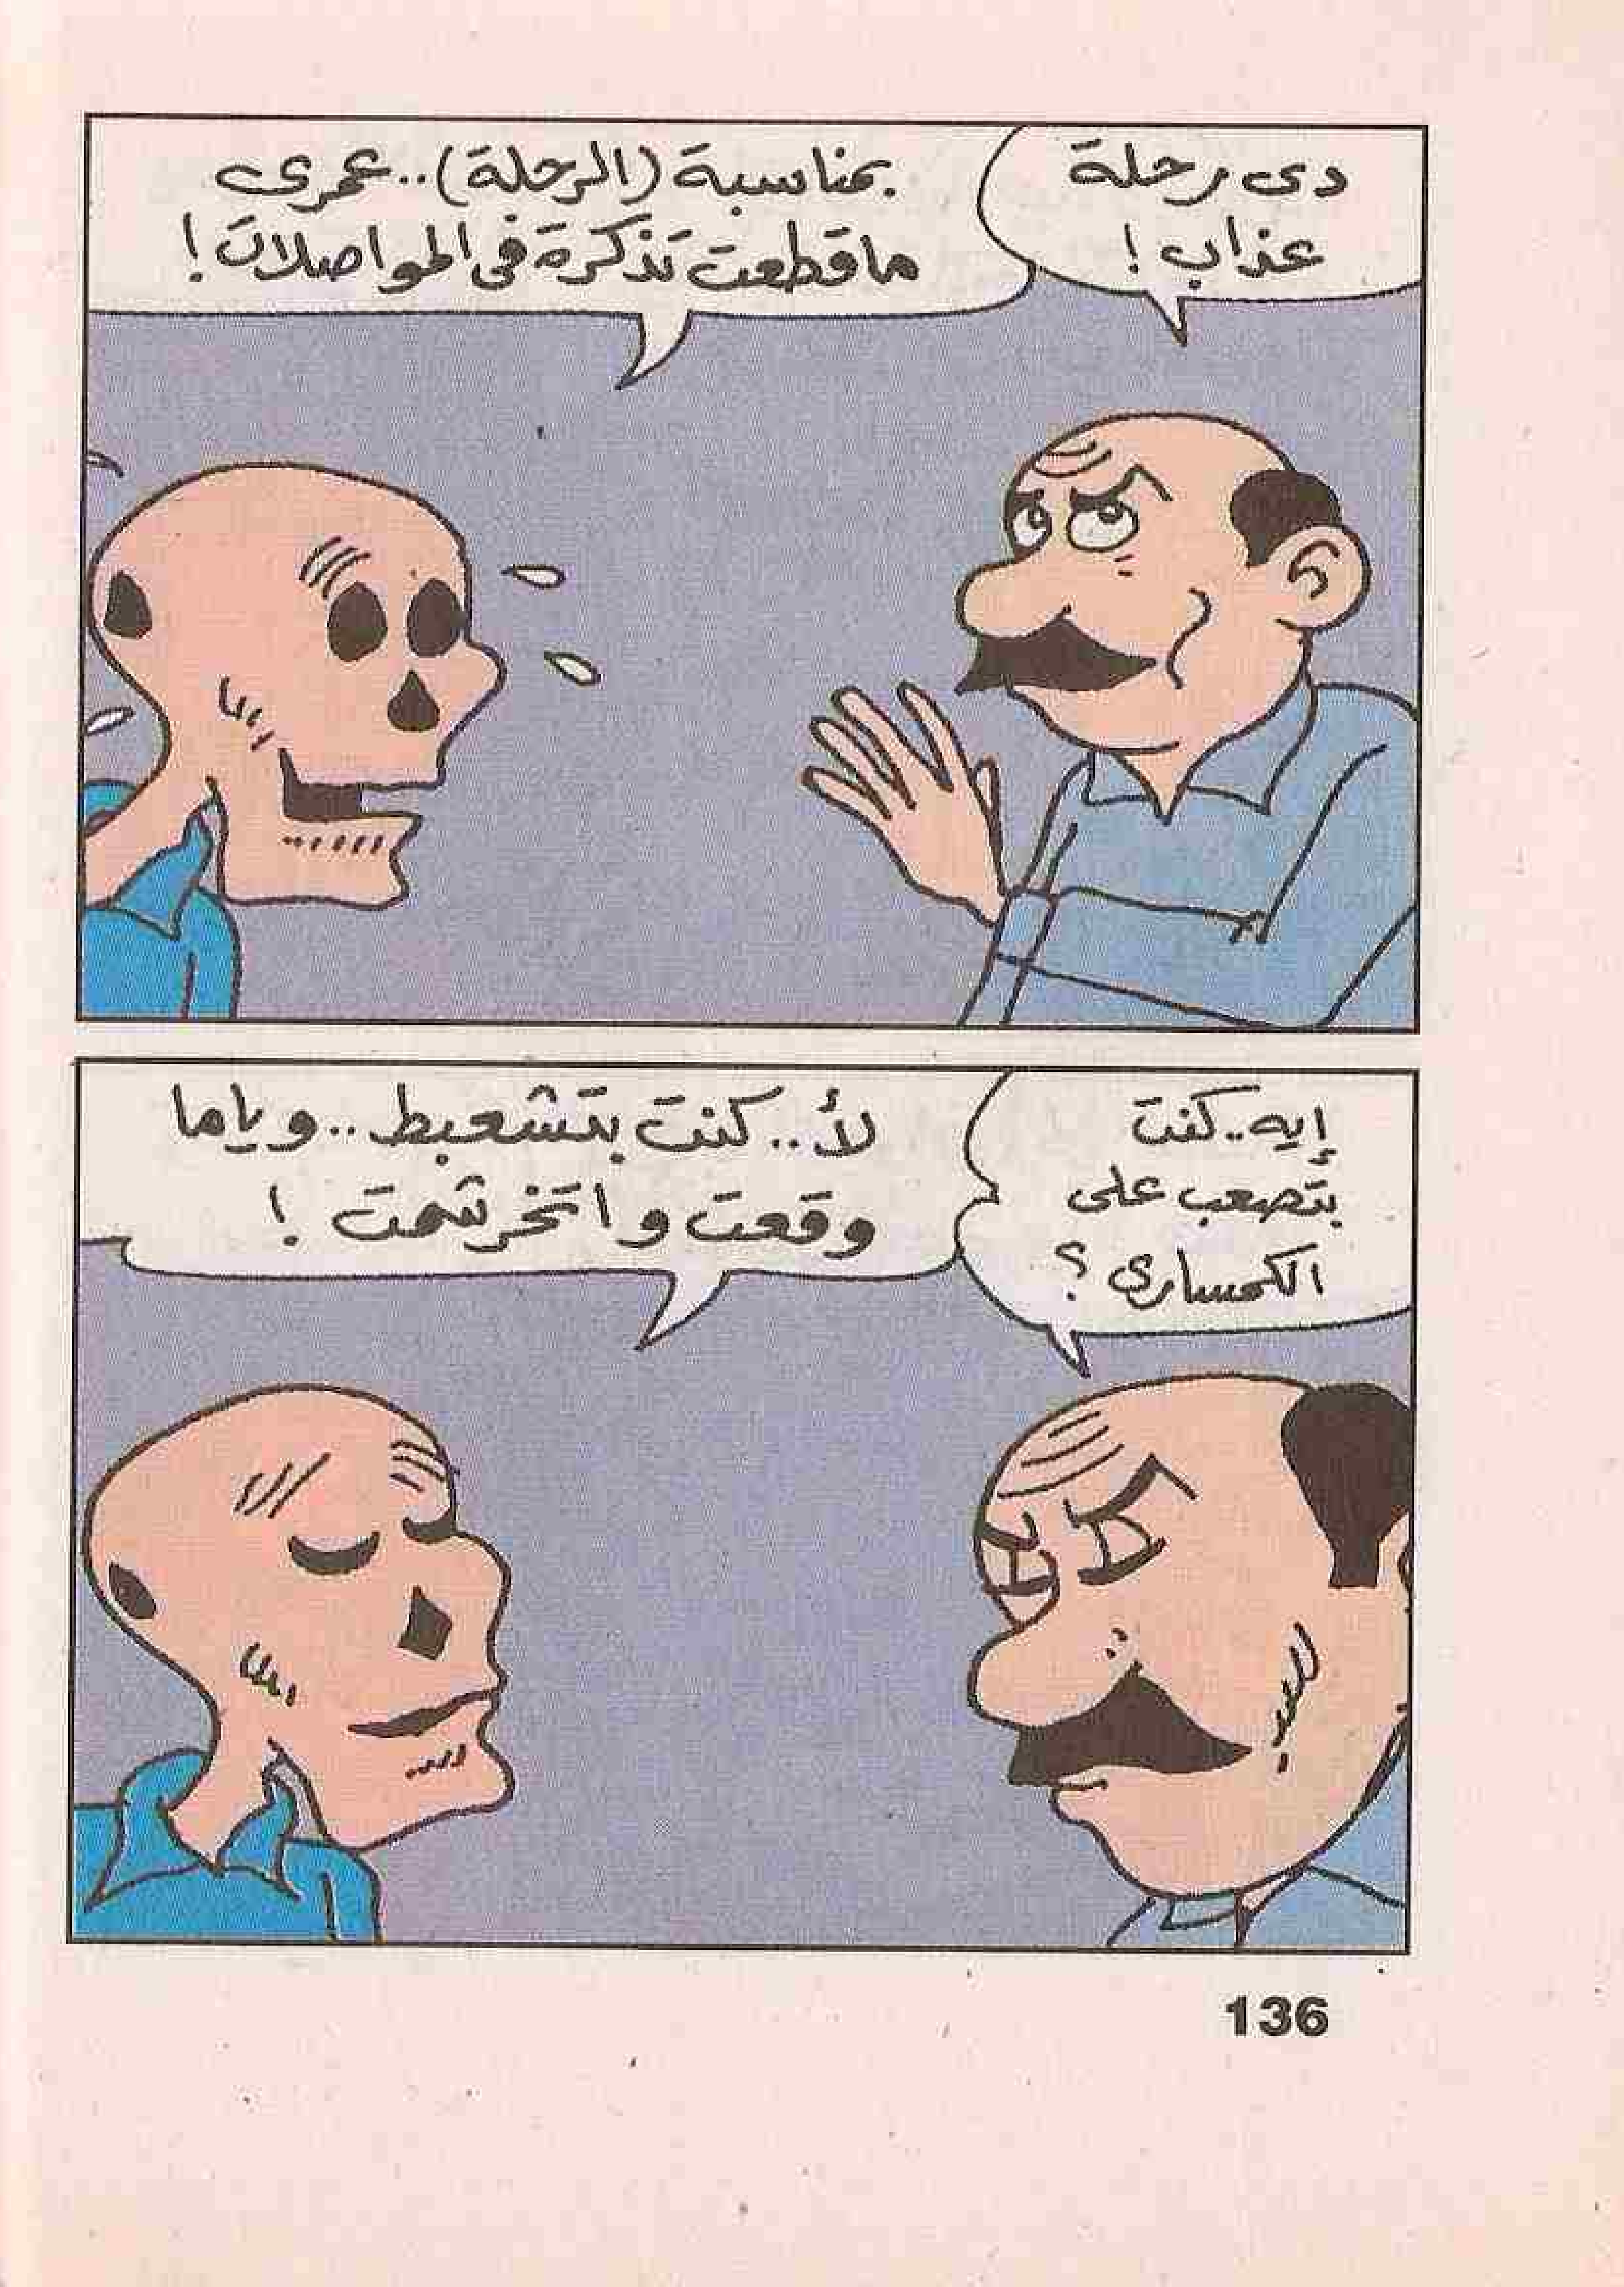 دى رحلة
عذاب!
بمناسبة (الرحلة)..عمرى
ماقطعت تذكرة فى المواصلات!
إيه..كنت
بتصعب على
الكمسارى؟
لأ..كنت بتشعبط..وياما
وقعت واتخرشمت!
136